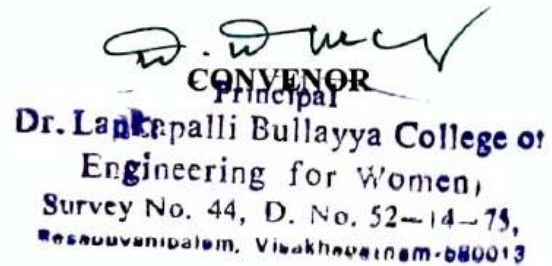 CONVENOR
Principal
Dr. Lankapalli Bullayya College of
Engineering for Women,
Survey No. 44, D. No. 52-14-75,
Resapuvanipalem, Visakhapatnam-530013